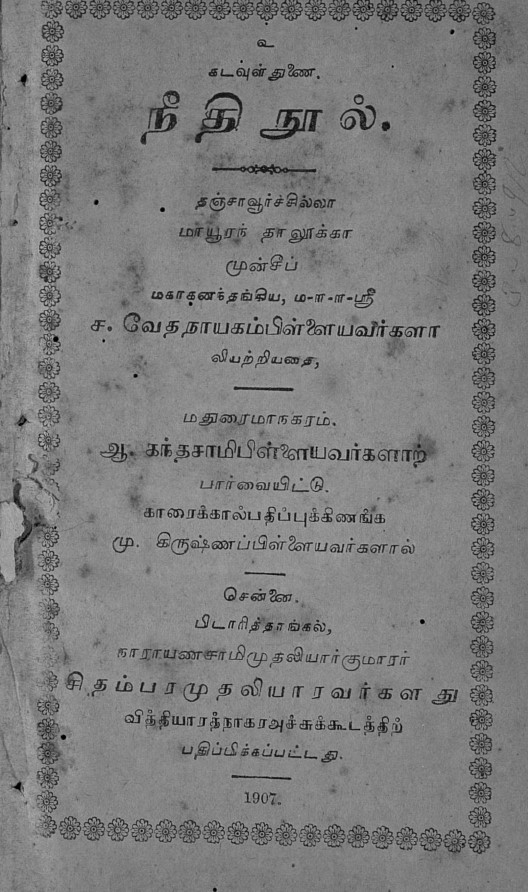 உ
கடவுள் துணை.
நீதி நூல்.
தஞ்சாவூர்ச்சில்லா
மாயூரந் தாலூக்கா
முன்சீப்
மகாகனந்தங்கிய, ம-ா-ா-ஸ்ரீ
ச. வேதநாயகம்பிள்ளையவர்களா
லியற்றியதை,
மதுரைமாநகரம்.
ஆ. கந்தசாமிபிள்ளையவர்களாற்
பார்வையிட்டு.
காரைக்கால்பதிப்புக்கிணங்க
மு. கிருஷ்ணப்பிள்ளையவர்களால்
சென்னை.
பிடாரித்தாங்கல்,
நாராயணசாமிமுதலியார்குமாரர்
சிதம்பரமுதலியாரவர்களது
வித்தியாரத்நாகரஅச்சுக்கூடத்திற்
பதிப்பிக்கப்பட்டது.
1907.